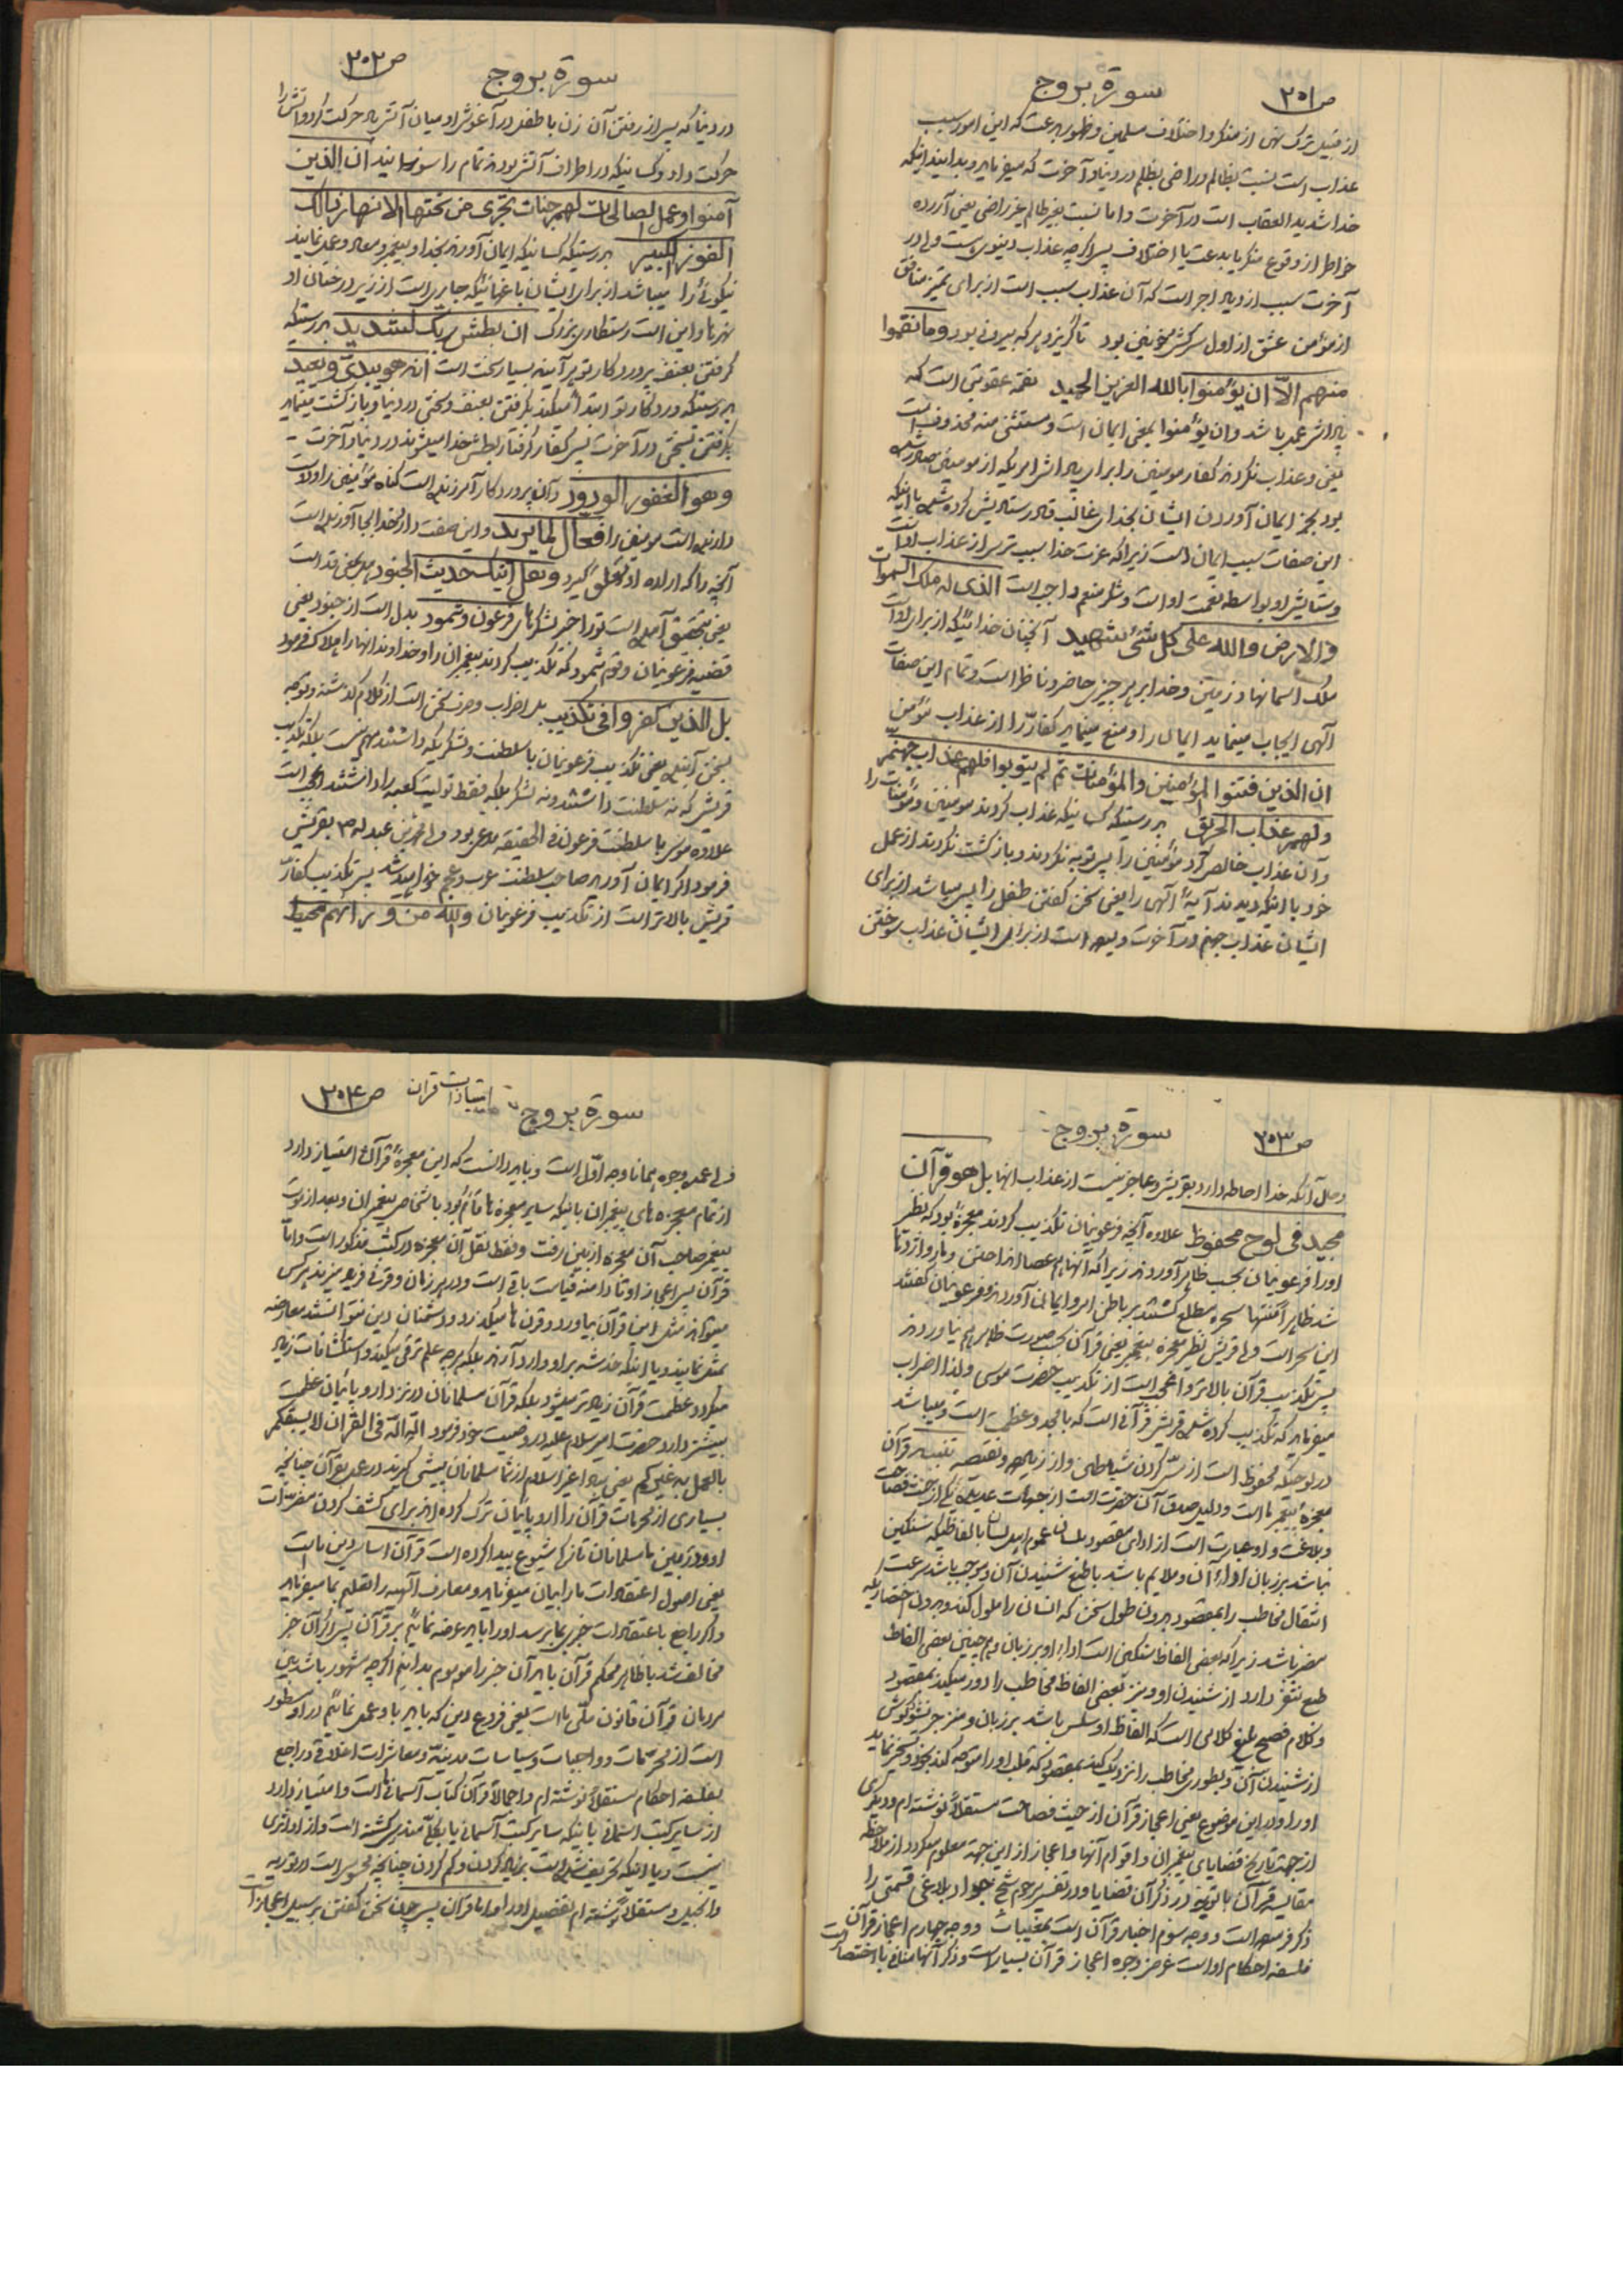 ص ۲۰۱
سورة بروج
از قبیل ترک نهی از منکر و اختلاف مسلمین و ظهور بدعت که این امور سبب
عذاب است نسبت بظالم و راضی بظلم در دنیا و آخرت که میفرماید و بدانید اینکه
خدا شدید العقاب است در آخرت و اما نسبت بغیر ظالم و غیر راضی یعنی آزرده
خاطر از وقوع منکر یا بدعت یا اختلاف پس اگر چه عذاب دنیوی است ولی در
آخرت سبب ازدیاد اجر است که آن عذاب سبب است از برای تمیز منافق
از مؤمن عشق از اول سرکش و خونین بود تا گریزد هر که بیرونی بود وما نقموا
منهم الّا ان یؤمنوا بالله العزیز الحمید نقمه عقوبتی است که
پاداش عمد باشد و ان یؤمنوا بمعنی ایمان است و مستثنی منه محذوف است
یعنی و عذاب نکردند کفار مؤمنین را برای پاداش امریکه از مومنین صادر شده
بود بجز ایمان آوردن ایشان بخدای غالب قادر ستایش کرده شده با اینکه
این صفات سبب ایمان است زیرا که عزت خدا سبب ترس از عذاب او است
و ستایش او بواسطه نعمت او است و شکر منعم واجب است الذی له ملک السموات
والارض والله علی کل شیٔ شهید آنچنان خدائیکه از برای او است
ملک آسمانها و زمین و خدا بر هر چیزی حاضر و ناظر است و تمام این صفات
آلهی ایجاب مینماید ایمان را و منع مینماید کفار را از عذاب مؤمن
ان الذین فتنوا المؤمنین والمؤمنات ثم لم یتوبوا فلهم عذاب جهنم
ولهم عذاب الحریق بدرستیکه کسانیکه عذاب کردند مومنین و مؤمنات را
و آن عذاب خالص کرد مؤمنین را پس توبه نکردند و بازگشت نکردند از عمل
خود با اینکه دیدند آیهٔ آلهی را یعنی سخن گفتن طفل را پس میباشد از برای
ایشان عذاب جهنم در آخرت و است از برای ایشان عذاب سوختن
ص ۲۰۲
سورة بروج
در دنیا که پس از رفتن آن زن با طفل در آغوش او میان آتش بحرکت کرد و آتش را
حرکت داد و کسانیکه در اطراف آتش بودند تمام را سوزانید ان الذین
آمنوا وعملوا الصالحات لهم جنات تجری من تحتها الانهار ذالک
الفوز الکبیر بدرستیکه کسانیکه ایمان آوردند بخدا و پیغمبر و معاد و عمل نمایند
نیکوئی را میباشد از برای ایشان باغهائیکه جاری است از زیر درختان او
نهرها و این است رستگاری بزرگ ان بطش ربک لشدید بدرستیکه
گرفتن بعنف پروردگار تو هر آینه بسیار سخت است انه هو یبدیٔ ویعید
بدرستیکه پروردگار تو ابتدأ میکند بگرفتن بعنف و سختی در دنیا و بازگشت مینماید
بگرفتن بسختی در آخرت پس کفار گرفتار بطش خدا میشوند در دنیا و آخرت
وهو الغفور الودود و آن پروردگار آمرزنده است گناه مؤمنین را و دوست
دارنده است مومنین را فعال لما یرید و این صفت دارد خدا بجا آورنده است
آنچه را که اراده او تعلق گیرد و هل اتیک حدیث الجنود هل بمعنی قد است
یعنی بتحقیق آمده است تو را خبر لشکرهای فرعون وثمود بدل است از جنود یعنی
قضیه فرعونیان و قوم ثمود که تکذیب کردند پیغمبران را و خداوند انها را هلاک فرمود
بل الذین کفروا فی تکذیب بل اضراب و صرف سخن است از کلام گذشته و توجه
بسخن آینده یعنی تکذیب فرعونیان با سلطنت و لشکریکه داشتند مهم نیست بلکه تکذیب
قریش که نه سلطنت داشتند و نه لشکر بلکه فقط تولیت کعبه را داشتند عجب است
علاوه موسی با سلطنت فرعون فی الحقیقه مدعی بود ولی محمد بن عبدالله ص بقریش
فرمود اگر ایمان آورید صاحب سلطنت عرب و عجم خواهید شد پس تکذیب کفار
قریش بالاتر است از تکذیب فرعونیان والله من ورائهم محیط
ص ۲۰۳
سورة بروج
و حال آنکه خدا احاطه دارد بقریش و عاجز نیست از عذاب انها بل هو قرآن
مجید فی لوح محفوظ علاوه آنچه فرعونیان تکذیب کردند معجزهٔ بود که نظر
او را فرعونیان بحسب ظاهر آوردند زیرا که آنها هم عصا انداختند و مار و اژدها
شد ظاهراً منتها سحره مطلع گشتند بر باطن امر و ایمان آوردند و فرعونیان گفتند
این سحر است ولی قریش نظیر معجزه پیغمبر یعنی قرآن بحسب صورت ظاهر هم نیاوردند
پس تکذیب قرآن بالاتر و اعجب است از تکذیب حضرت موسی و لذا اضراب
میفرماید که تکذیب کرده شده قریش قرآنی است که با مجد و عظمت است و میباشد
در لوحیکه محفوظ است از مس کردن شیاطین و از زیاده و نقیصه تنبیه قرآن
معجزهٔ پیغمبر ما است و دلیل صدق آن حضرت است از جهات عدیده یکی از جهت فصاحت
و بلاغت و او عبارت است از ادای مقصود بلسان عموم اهل لسان بالفاظیکه سنگین
نباشد بر زبان اداء آن و ملایم باشد با طبع شنیدن آن و موجب باشد سرعت
انتقال مخاطب را بمقصود بدون طول سخن که انسان را ملول کند و بدون اختصاریکه
مضر باشد زیرا که بعضی الفاظ سنگین است اداء او بر زبان و هم چنین بعضی الفاظ
طبع تنفر دارد از شنیدن او و نیز بعضی الفاظ مخاطب را دور میکند بمقصود
و کلام فصیح بلیغ کلامی است که الفاظ او سلس باشد بر زبان و منزجر نشود گوش
از شنیدن آن و بطوری مخاطب را نزدیک کند بمقصود که قلب او را متوجه کند بخود و تسخیر نماید
او را و در این موضوع یعنی اعجاز قرآن از حیث فصاحت مستقلاً نوشته ام و دیگری
از جهت تاریخ قضایای پیغمبران و اقوام آنها و اعجاز از این جهة معلوم میگردد از ملاحظه
مقایسه قرآن با توریة در ذکر آن قضایا و در تفسیر مرحوم شیخ جواد بلاغی قسمتی را
ذکر فرموده است و وجه سوم اخبار قرآن است بمغیبات و وجه چهارم اعجاز قرآن
فلسفه احکام او است غرض وجوه اعجاز قرآن بسیار است و ذکر آنها منافی با اختصار است
ص ۲۰۴
امتیازات قرآن
سورة بروج
ولی عمده وجوه همانا وجه اول است و باید دانست که این معجزهٔ قرآن امتیاز دارد
از تمام معجزه های پیغمبران باینکه سایر معجزه ها قائم بود باشخاص پیغمبران و بعد از موت
پیغمبر صاحب آن معجزه از بین رفت و فقط نقل آن معجزه در کتب مذکور است و امّا
قرآن پس اعجاز او تا دامنه قیامت باقی است و در هر زمان و قرنی فریاد میزند هر کس
میتواند مثل این قرآن بیاورد و قرن ها میگذرد و دشمنان دین نتوانستند معارضه
بمثل نمایند و یا اینکه خدشه بر او وارد آرند بلکه هر چه علم ترقی میکند و استکشافات زیاد
میگردد عظمت قرآن زیادتر میشود بلکه قرآن مسلمانان در نزد اروپائیان عظمت
بیشتر دارد حضرت امیر سلام علیه در وصیت خود فرمود الله الله فی القرآن لا یسبقکم
بالعمل به غیرکم یعنی مبادا غیر اسلام از شما مسلمانان پیشی گیرند در عمل بقرآن چنانچه
بسیاری از محرمات قرآن را اروپائیان ترک کرده اند برای کشف کردن مضرات
او و در بین ما مسلمانان تازه شیوع پیدا کرده است قرآن اساس دین ما است
یعنی اصول اعتقادات ما را بیان میفرماید و معارف آلهیه را تعلیم بما میفرماید
و اگر راجع باعتقادات خبری بما برسد او را باید عرضه نمائیم بر قرآن پس اگر آن خبر
مخالف شد با ظاهر محکم قرآن باید آن خبر را موهوم بدانیم اگر چه مشهور باشد بین
مردمان قرآن قانون ملّی ما است یعنی فروع دین که باید باو عمل نمائیم در او مسطور
است از محرّمات و واجبات و سیاسات مدنیّه و معاشرات اخلاقی و راجع
بفلسفه احکام مستقلاً نوشته ام و اجمالاً قرآن کتاب آسمانی ما است و امتیاز دارد
از سایر کتب آسمانی باینکه سایر کتب آسمانی یا بکلّی مندرس گشته است و از او اثری
نیست و یا اینکه تحریف شده است بزیاد کردن و کم کردن چنانچه محسوس است در توریه
و انجیل و مستقلاً نوشته ام تفصیل او را و اما قرآن پس چون سخن گفتن بر سبیل اعجاز است